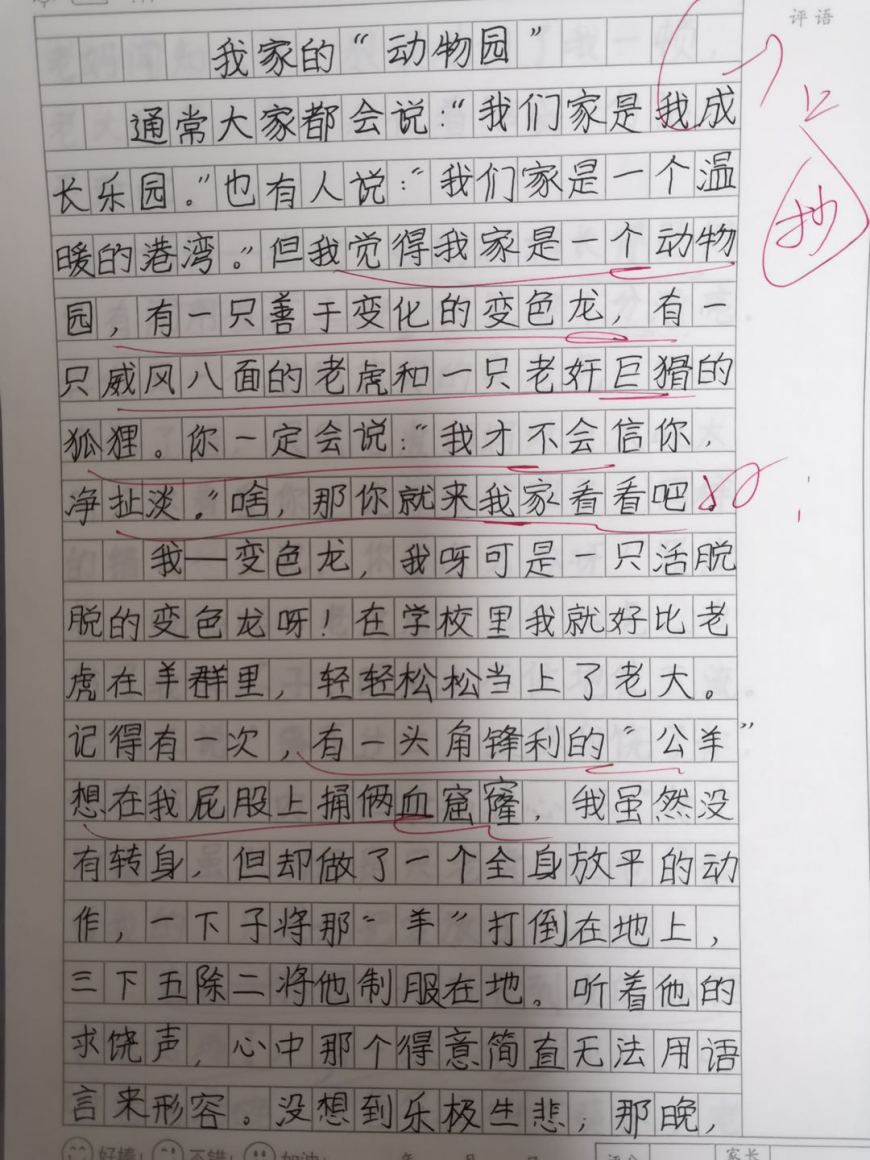 评语
我家的“动物园”
通常大家都会说：“我们家是我成
长乐园。”也有人说：“我们家是一个温
暖的港湾。”但我觉得我家是一个动物
园，有一只善于变化的变色龙，有一
只威风八面的老虎和一只老奸巨猾的
狐狸。你一定会说：“我才不会信你，
净扯淡。”啥，那你就来我家看看吧。
我—变色龙，我呀可是一只活脱
脱的变色龙呀！在学校里我就好比老
虎在羊群里，轻轻松松当上了老大。
记得有一次，有一头角锋利的“公羊”
想在我屁股上捅俩血窟窿，我虽然没
有转身，但却做了一个全身放平的动
作，一下子将那“羊”打倒在地上，
三下五除二将他制服在地。听着他的
求饶声，心中那个得意简直无法用语
言来形容。没想到乐极生悲；那晚，
抄
好棒！ 不错！ 加油！ 年 月 日
家长